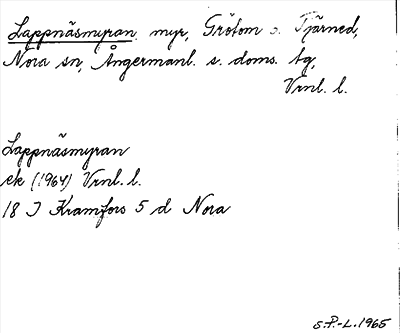 Lappnäsmyran, myr, Grötom o. Tjärned,
Nora sn, Ångermanl. s. doms. tg,
Vrnl. l.
Lappnäsmyran
ek (1964) Vrnl. l.
18 J Kramfors 5 d Nora
S.P.-L. 1965